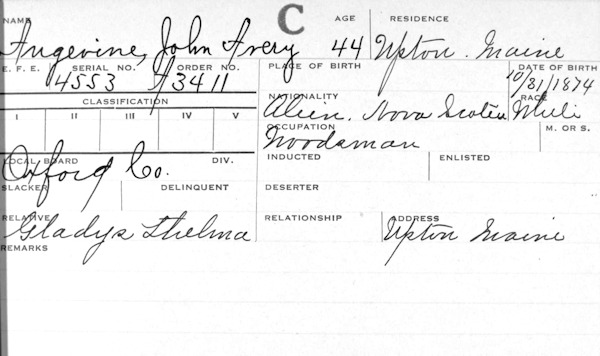 C
NAME AGE RESIDENCE
Angevine, John Avery 44 Upton. Maine
E. F. E. SERIAL NO. ORDER NO. PLACE OF BIRTH DATE OF BIRTH
4553 A3411 10/31/1874
CLASSIFICATION NATIONALITY RACE
Alien. Nova Scotia
I II III IV V OCCUPATION M. OR S.
Woodsman
LOCAL BOARD DIV. INDUCTED ENLISTED
Oxford Co.
SLACKER DELINQUENT DESERTER
RELATIVE RELATIONSHIP ADDRESS
Gladys Thelma Upton Maine
REMARKS